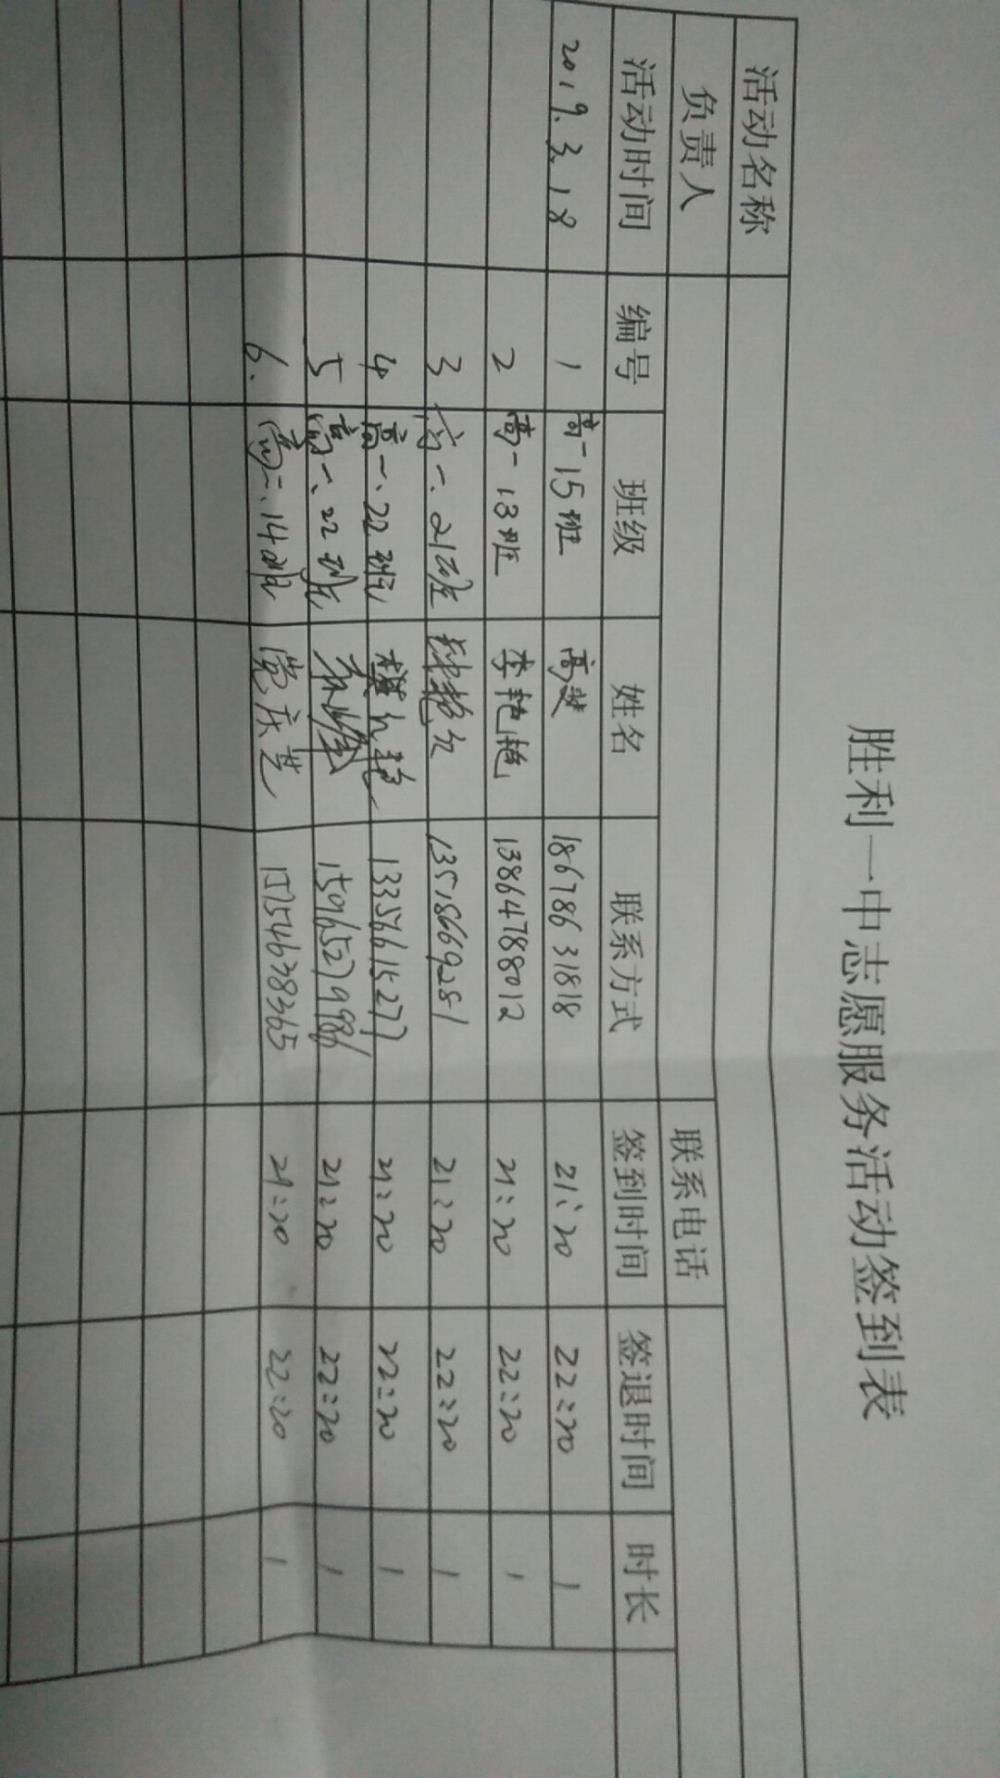 胜利一中志愿服务活动签到表
活动名称
负责人 联系电话
活动时间 编号 班级 姓名 联系方式 签到时间 签退时间 时长
2019.3.18 1 高一15班 高雯 18678631818 21:20 22:20 1
2 高一13班 李艳艳 13864788012 21:20 22:20 1
3 高一.21班 13518669281 21:20 22:20 1
4 高一.22班 13356615277 21:20 22:20 1
5 高一.22班 15965279986 21:20 22:20 1
6. 高二.14班 庆芝 15754638365 21:20 22:20 1